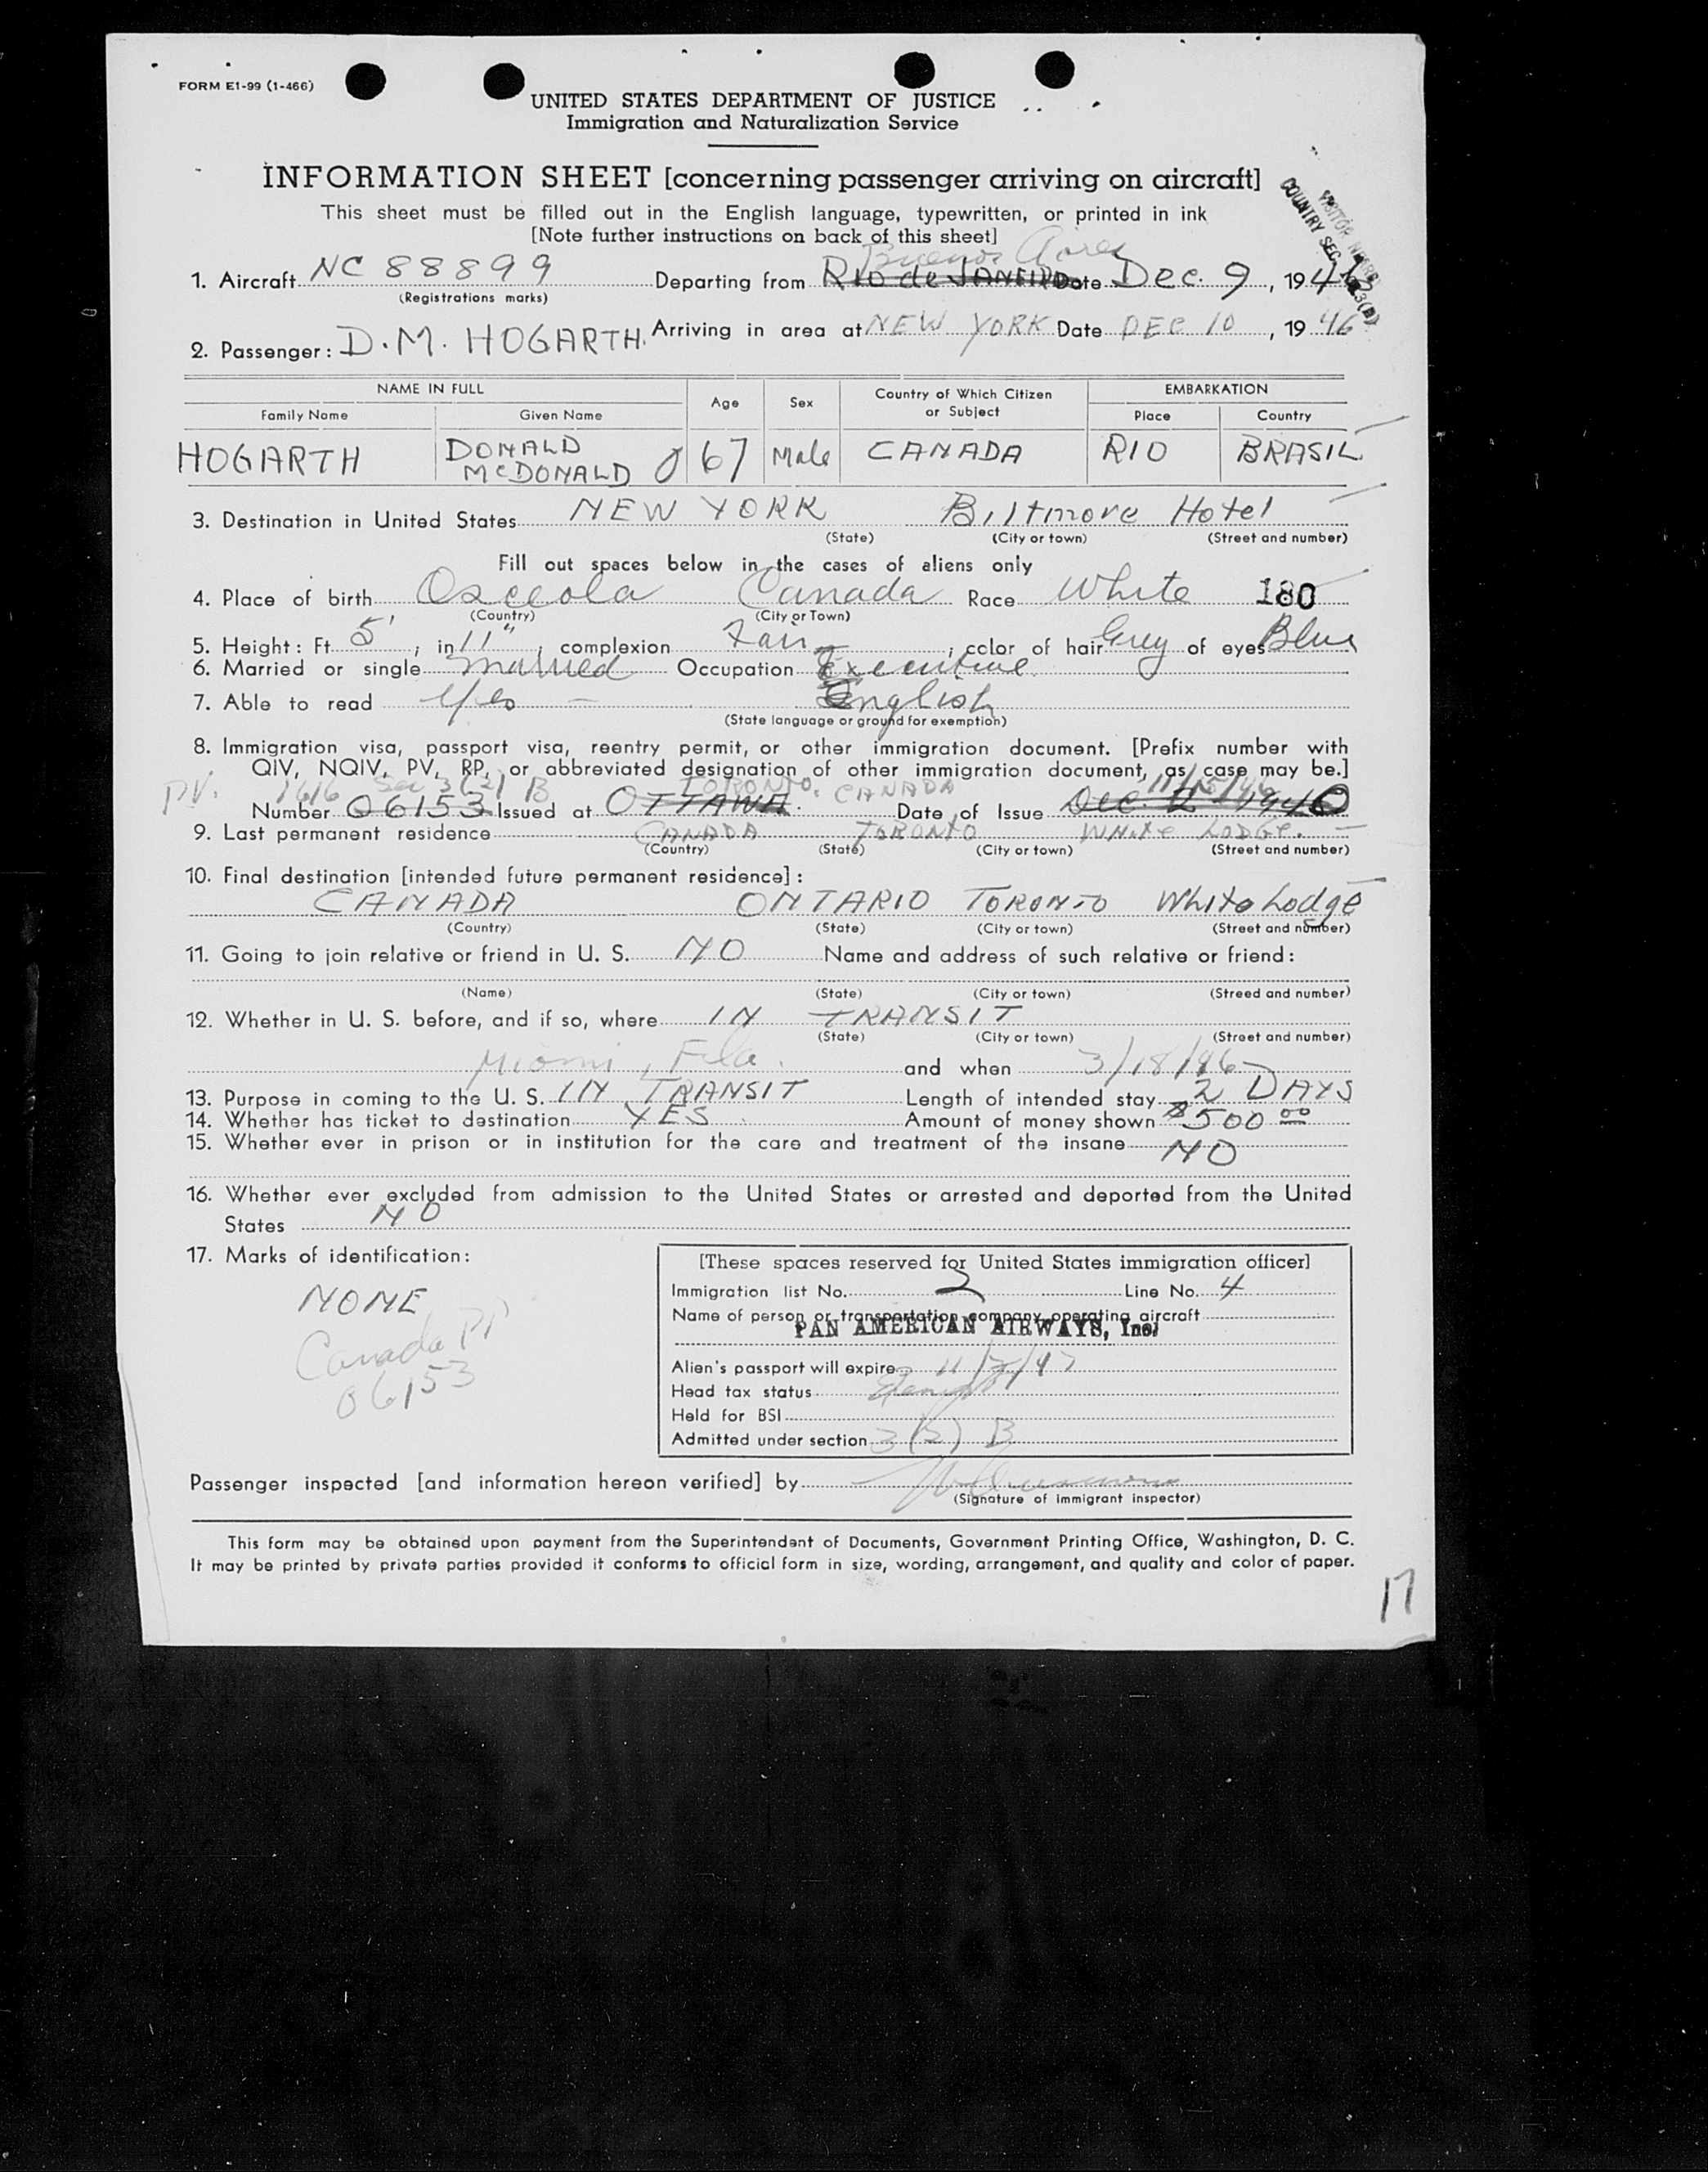 FORM E1-99 (1-466)
UNITED STATES DEPARTMENT OF JUSTICE
Immigration and Naturalization Service
INFORMATION SHEET [concerning passenger arriving on aircraft]
This sheet must be filled out in the English language, typewritten, or printed in ink
[Note further instructions on back of this sheet]
Buenos Aires
1. Aircraft NC 88899 Departing from Rio de JANEIRO Date Dec. 9, 1946
(Registrations marks)
Arriving in area at NEW YORK Date DEC 10, 19 46
2. Passenger: D.M. HOGARTH.
NAME IN FULL Age Sex Country of Which Citizen or Subject EMBARKATION
Family Name Given Name Place Country
HOGARTH DONALD McDONALD 67 Male CANADA RIO BRASIL
3. Destination in United States NEW YORK Biltmore Hotel
(State) (City or town) (Street and number)
Fill out spaces below in the cases of aliens only
4. Place of birth Osceola Canada Race White 180
(Country) (City or Town)
5. Height: Ft. 5'; in 11"; complexion Fair; color of hair Grey of eyes Blue
6. Married or single married Occupation Executive
7. Able to read Yes - English
(State language or ground for exemption)
8. Immigration visa, passport visa, reentry permit, or other immigration document. [Prefix number with
QIV, NQIV, PV, RP, or abbreviated designation of other immigration document, as case may be.]
PV. 1616 Sec 3(2) B TORONTO, CANADA 11/15/46
Number 06153 Issued at OTTAWA. Date of Issue Dec. 2 1940
9. Last permanent residence CANADA TORONTO White LODGE.
(Country) (State) (City or town) (Street and number)
10. Final destination [intended future permanent residence]:
CANADA ONTARIO TORONTO White Lodge
(Country) (State) (City or town) (Street and number)
11. Going to join relative or friend in U. S. NO Name and address of such relative or friend:
(Name) (State) (City or town) (Streed and number)
12. Whether in U. S. before, and if so, where IN TRANSIT
(State) (City or town) (Street and number)
Miami, Fla. and when 3/18/46
13. Purpose in coming to the U. S. IN TRANSIT Length of intended stay 2 DAYS
14. Whether has ticket to destination YES Amount of money shown $500 00
15. Whether ever in prison or in institution for the care and treatment of the insane NO
16. Whether ever excluded from admission to the United States or arrested and deported from the United
States NO
17. Marks of identification:
NONE
Canada PP
06153
[These spaces reserved for United States immigration officer]
Immigration list No. 2 Line No. 4
Name of person or transportation company operating aircraft
PAN AMERICAN AIRWAYS, Inc.
Alien's passport will expire 11/2/47
Head tax status Exempt
Held for BSI
Admitted under section 3(2) B
Passenger inspected [and information hereon verified] by
(Signature of immigrant inspector)
This form may be obtained upon payment from the Superintendent of Documents, Government Printing Office, Washington, D. C.
It may be printed by private parties provided it conforms to official form in size, wording, arrangement, and quality and color of paper.
17